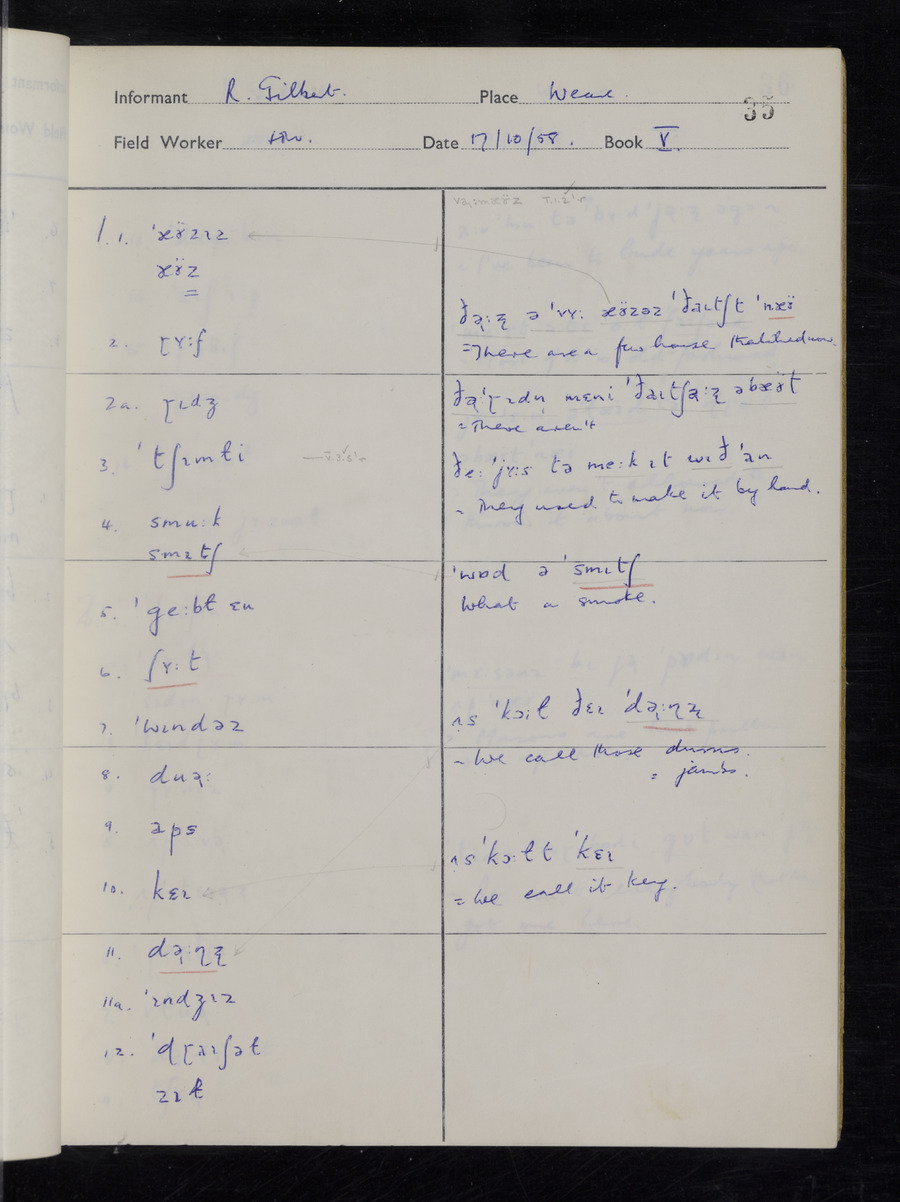 Informant R. Gilbert. Place Weare.
35
Field Worker Date 17/10/58. Book V.
1.1. ˈæʏ̈zɪz
æʏ̈z
2. ɽʏ:f
2a. ɽɪdʒ
3. ˈtʃɪmli
4. smu:k
smɪtʃ
5. ˈge:bɫ ɛn
6. ʃʏ:t
7. ˈwɪndəz
8. duə̢:
9. aps
10. kɛɪ
11. də̢:ɳʐ
11a. ˈɪndʒɪz
12. ˈdɽaɪʃəɫ
zɪɫ
ðə̢:ʐ ə ˈvʏ: æʏ̈zəz ˈðaɪtʃt ˈnæʏ̈
= There are a few house thatched now.
ðə̢ˈɽɪdn mɛni ˈðaɪtʃə̢:ʐ əbæʏ̈t
= There aren't
ðe: ˈjʏ:s tə me:k ɪt wɪð ˈan
= They used to make it by hand.
ˈwɒd ə ˈsmɪtʃ
What a smoke.
ʌs ˈkɔ:ɫ ðɛɪ ˈdə̢:ɳʐ
= We call those durns.
= jambs.
ʌs ˈkɔ:ɫ t ˈkɛɪ
= We call it key.